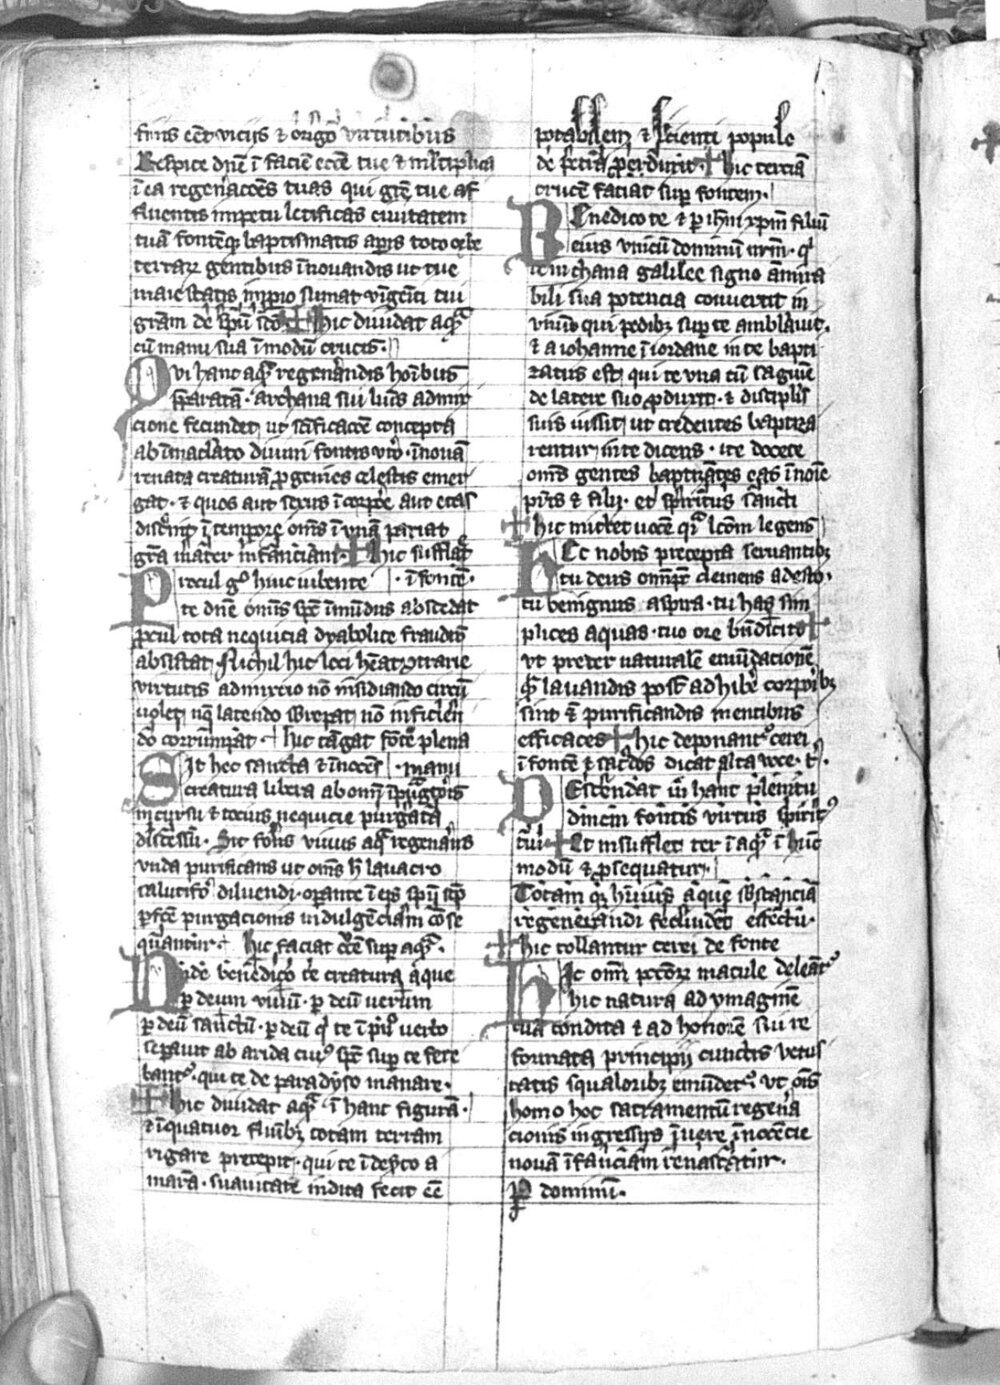 finis eēt vicijs & origo virtutibus
Respice dnē ī faciē eccē tue & mltiplica
ī ea regenacōes tuas qui grē tue af
fluentis impetu letificas ciuitatem
tuā fontēq baptismatis apis toto orbe
terraꝝ gentibus īnouandis ut tue
maiestatis impio sumat vnigeīti tui
grām de spū scō ✠ hic diuidat aqᷓ
cū manu sua ī modū crucis.
Qvi hanc aqᷓ regenandis hoībus
ꝑparatā. archana sui luīs admix
cione fecundet ut sāificacōe concepta
ab īmaclato diuini fontis vto. īnouā
renata creaturā ꝓgenies celestis emer
gat. & quos aut sexus ī corpe aut etas
discnīt ī tempore oms ī vnā pariat
grā mater infanciam. ✠ hic sufflat
Procul go huic iubente . ī fontē.
te dnē omīs spc īmūdus abscedat
ꝓcul tota nequicia dyabolice fraudis
absistat Nichil hic loci hēat ꝯtrarie
virtutis admixcio nō insidiando circū
uolet nq latendo subrepat nō inficien
do corrumpat. hic tāgat fōtē plena
Sit hec sancta & īnocēs . manu
creatura libera ab omī īpugtōis
incursu & tocius nequicie purgata
discessu. Sit fōs viuus aqᷓ regenans
vnda purificans ut oms h lauacro
salutifo diluendi. opante ī eis spū scō
ꝑfcē purgacionis indulgēciam cōse
quantur. hic faciat cēē sup aqᷓ.
Vnde benedico te creatura aque
ꝑ deum viuū. ꝑ deū uerum
ꝑ deū sanctū. ꝑ deū q te ī pn verbo
sepauit ab arida cuiꝰ spc sup te fere
bant. qui te de paradyso manare.
✠ hic diuidat aqᷓ ī hanc figurā.
& ī quatuor fluībꝫ totam terram
rigare precepit. qui te ī deserto a
marā. suauitate indita fecit cē
potabilem & sicienti populo
de petra ꝓduxit. ✠ hic terciā
crucē faciat sup fontem.
Benedico te & ꝑ ihm xpm filiū
eius vnicū dominū nrm. q
te in chana galilee signo āmira
bili sua potencia conuertit in
vinū qui pedibꝫ sup te amblauit.
& a iohanne ī iordane in te bapti
zatus est qui te vna cū saguīe
de latere suo ꝓduxit. & disciplis
suis iussit ut credentes baptiza
rentur in te dicens. ite docete
oms gentes baptizātes eas ī noīe
pris & filij. et spiritus sancti
✠ hic mutet uocē qᷓ lcōm legens
Hec nobis precepta seruantibꝫ
tu deus omps clemens adesto.
tu benignus aspira. tu has sim
plices aquas. tuo ore bndicito ✠
vt preter naturalē emūdacionē
qᷓ lauandis post adhibe corpibꝫ
sint & purificandis mentibus
efficaces ✠ hic deponant cerei
ī fonte & sacdos dicat alta uoce. t.
Descendat in hanc plenitu
dinem fontis virtus spirit
tui ✠ Et insufflet ter ī aqᷓ ī hūc
modū & ꝓsequatur.
Totam q huius aque sbstanciā
regenerandi fecūdet effectu.
✠ hic tollantur cerei de fonte
Hic omī pctorꝫ macule deleant
hic natura ad ymaginē
tuā condita & ad honorē sui re
formata principij cunctis vetus
tatis squaloribꝫ emūdet. vt ois
homo hoc sacramentū regena
cionis ingressus ī uere īnocēcie
nouā īfanciam renascatur.
P dominū.